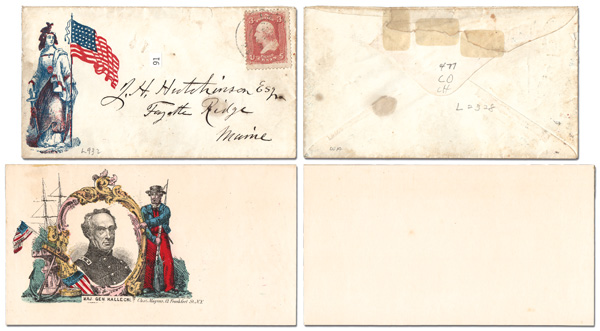 91
J. H. Hutchinson Esq.
Fayette Ridge
Maine
L932
477
CO
CH
L=328
MAJ. GEN. HALLECK.
Chas. Magnus, 12 Frankfort St. N.Y.